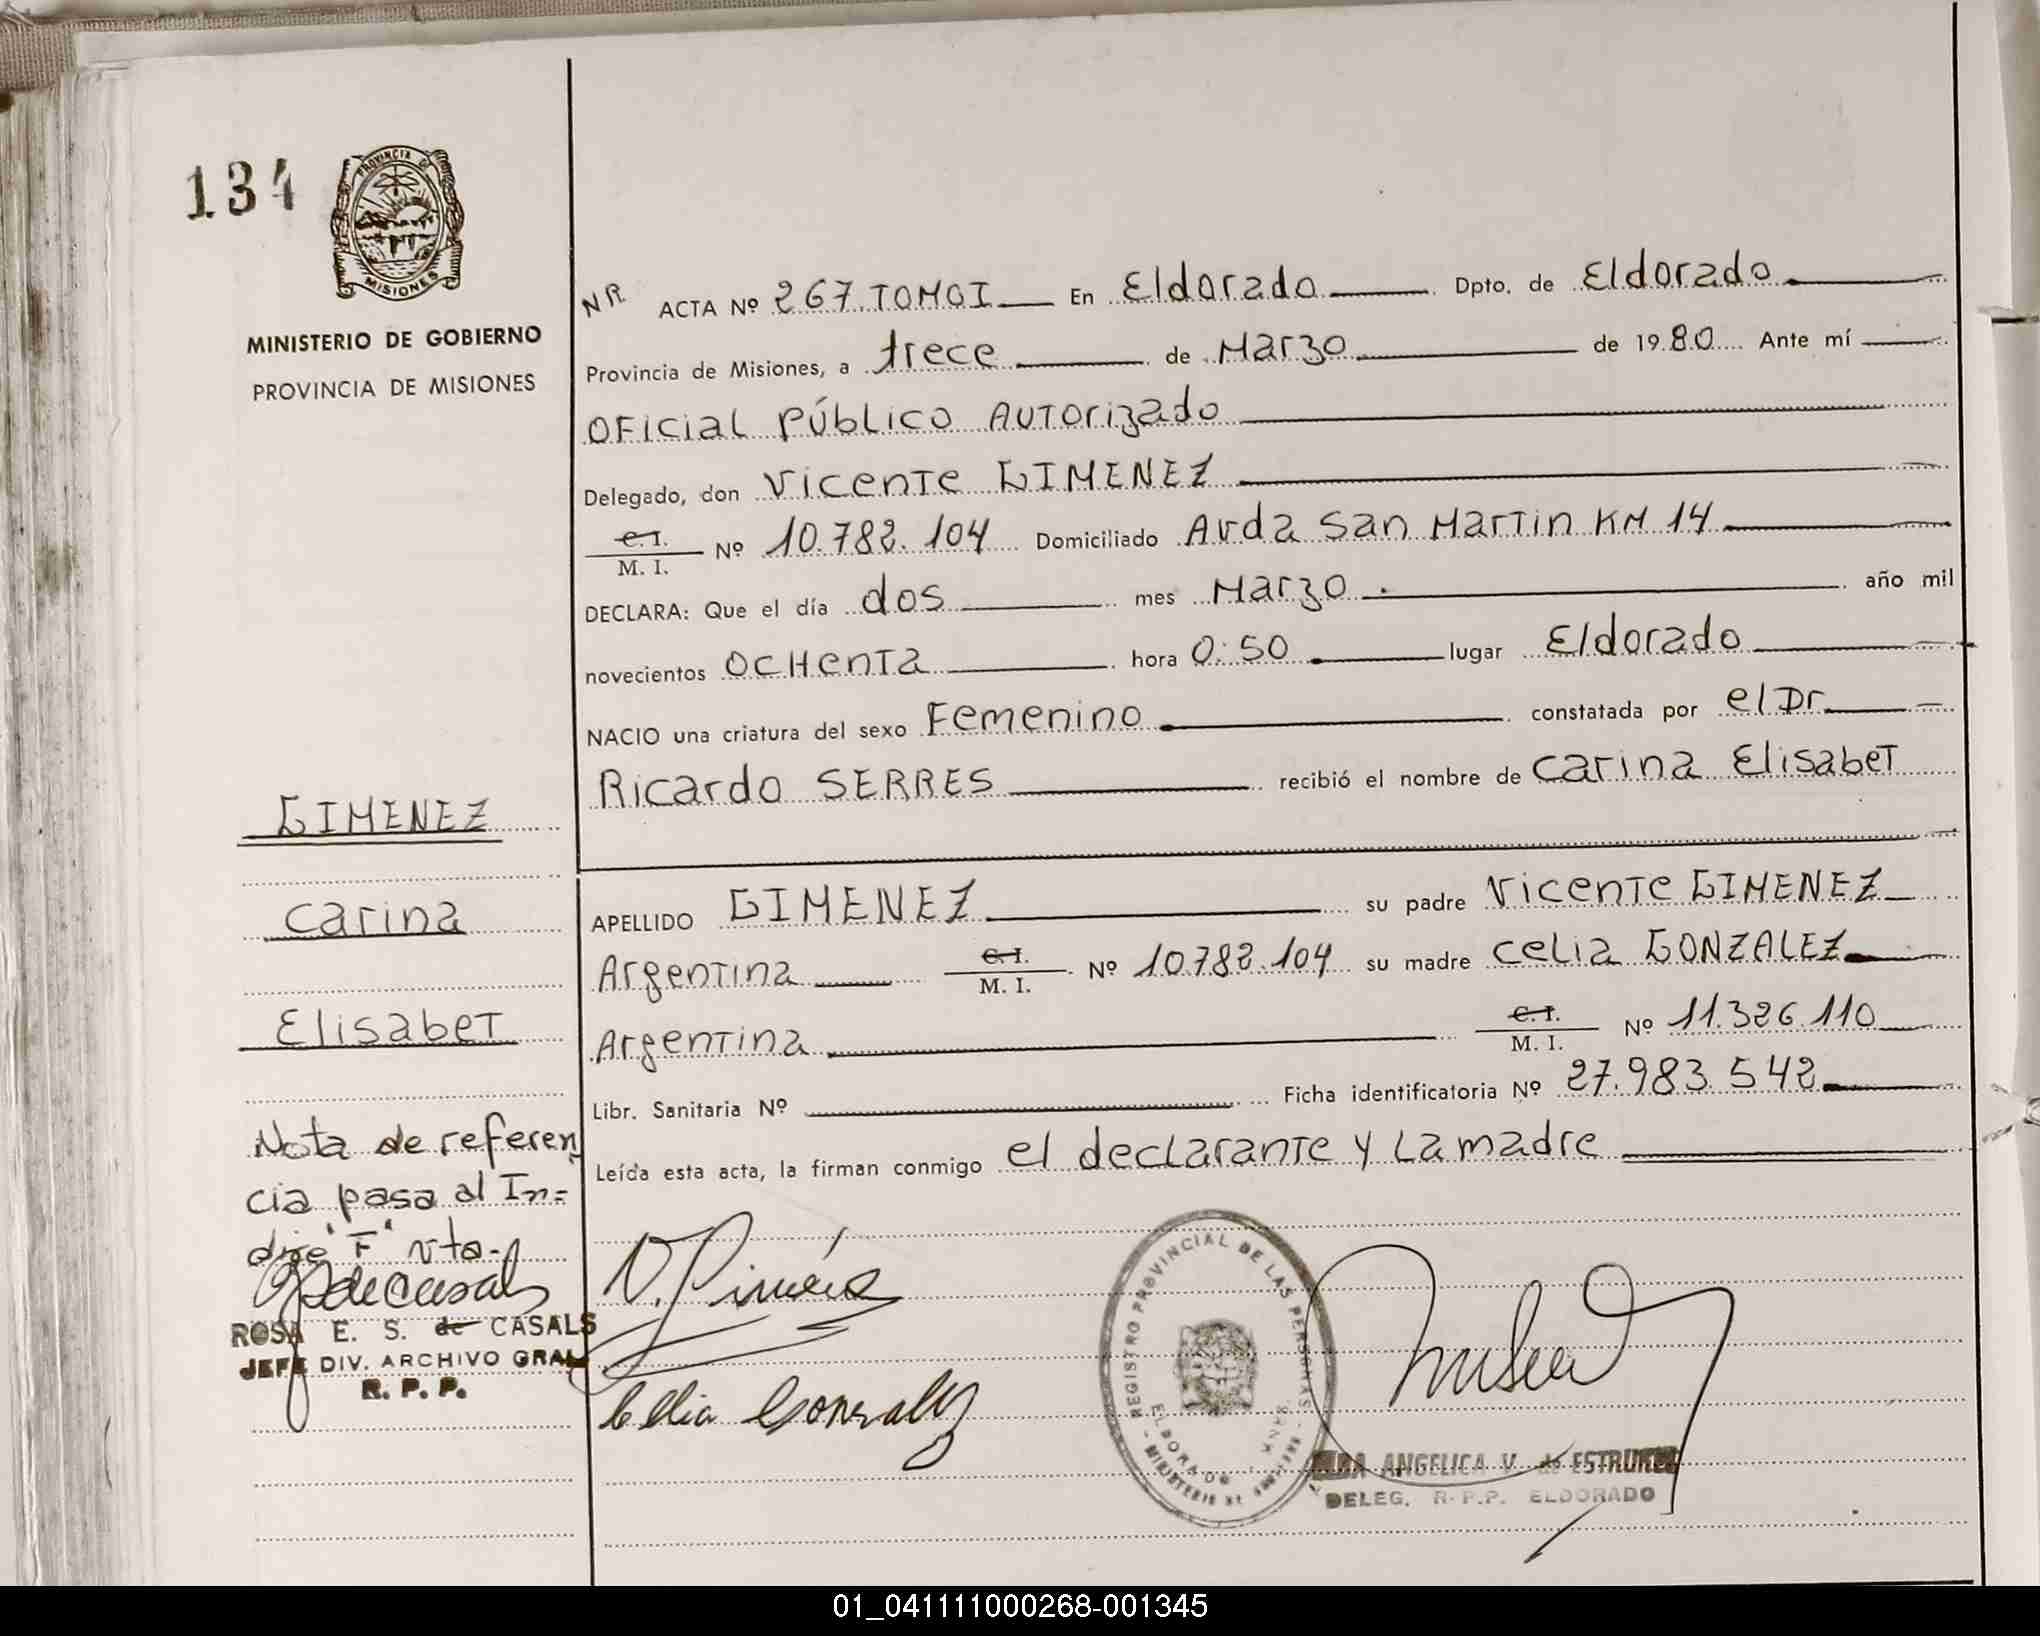 134
PROVINCIA DE
MISIONES
MINISTERIO DE GOBIERNO
PROVINCIA DE MISIONES
NR ACTA Nº 267.TOMOI En Eldorado Dpto. de Eldorado
Provincia de Misiones, a trece de Marzo de 1980 Ante mí
OFicial Público Autorizado
Delegado, don Vicente GIMENEZ
C.I. M. I. Nº 10.782.104 Domiciliado Avda San Martin KM 14
DECLARA: Que el día dos mes Marzo año mil
novecientos ochenta hora 0:50 lugar Eldorado
NACIO una criatura del sexo Femenino constatada por el Dr
Ricardo SERRES recibió el nombre de Carina Elisabet
APELLIDO GIMENEZ su padre Vicente GIMENEZ
Argentina C.I. M. I. Nº 10.782.104 su madre Celia GONZALEZ
Argentina C.I. M. I. Nº 11.326.110
Libr. Sanitaria Nº Ficha identificatoria Nº 27.983.542
Leída esta acta, la firman conmigo el declarante y La madre
GIMENEZ
Carina
Elisabet
Nota de referen
cia pasa al In=
dice "F" vta.
ROSA E. S. de CASALS
JEFE DIV. ARCHIVO GRAL
R. P. P.
Celia Gonzalez
REGISTRO PROVINCIAL DE LAS PERSONAS
ELDORADO
ANGELICA V. de
DELEG. R.P.P. ELDORADO
01_041111000268-001345